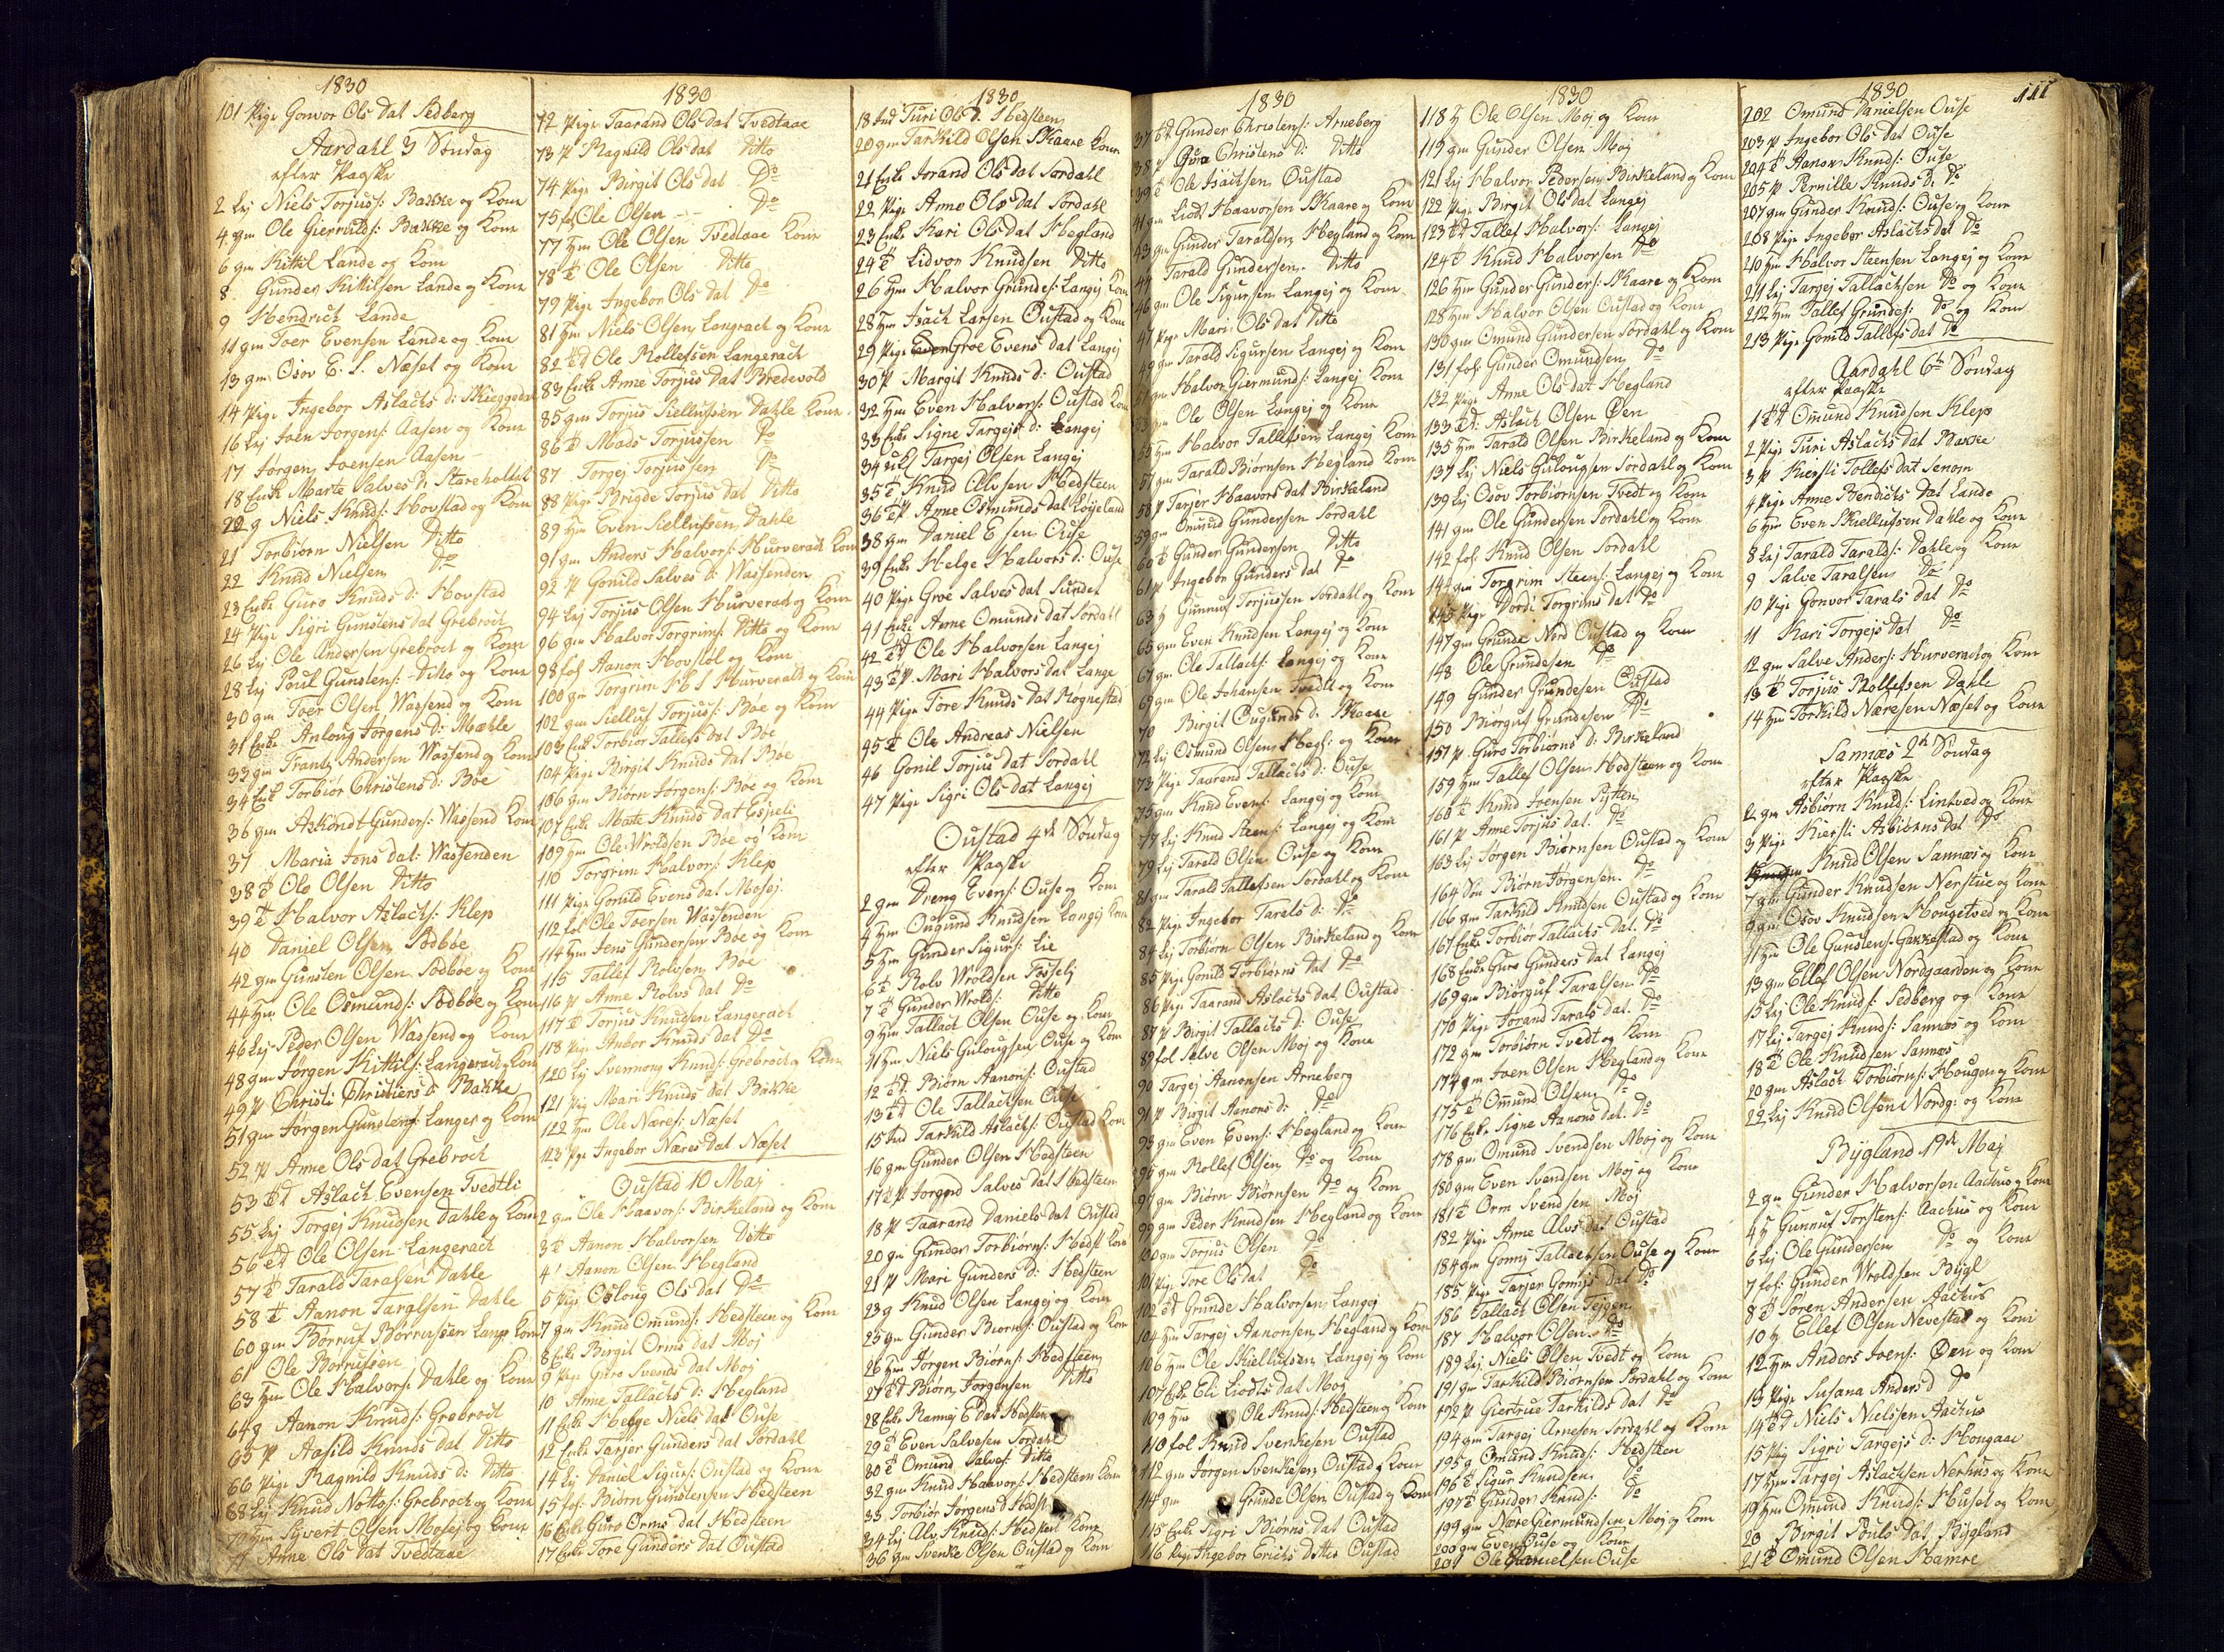 1830
101 Pige Gonvor Ols Dat Sedberg
Aardahl 3 Søndag
efter Paaske
2 Lej Niels Torjus: Bakke og Kone
4 gm Ole Gierruls: Bakke og Kone
6 gm Kittil Lande og Kone
8 Gunder Kittilsen Lande og Kone
9 Hendrich Lande
11 gm Toer Evensen Lande og Kone
13 gm Osov E. S. Næset og Kone
14 Pige Ingebor Aslachs d:
16 Lej Joen Jorgens: Aasen og Kone
17 Jørgen Joensen Aasen
18 Enke Marte Salves d:
20 g Niels Knuds: Hovstad og Kone
21 Torbiørn Nielsen Ditto
22 Knud Nielsen Do
23 Enke Guro Knuds d: Hovstad
24 Pige Sigri Gunstens dat Grebroch
26 Lej Ole Andersen Grebroch og Kone
28 Lej Poul Gunstens: Ditto og Kone
30 gm Toer Olsen Wassend og Kone
31 Enke Anloug Jørgens d: Mæhle
33 gm Frantz Andersen Wassend og Kone
34 Enk Torbiør Christens d: Bøe
36 gm Askondt Gunders: Wassend Kone
37 Maria Jons dat: Wassenden
38 Ole Olsen Ditto
39 Halvor Aslachs: Klep
40 Daniel Olsen Sodbøe
42 gm Gunsten Olsen Sodbøe og Kone
44 Hm Ole Osmunds: Sodbøe og Kone
46 Lej Peder Olsen Wassend og Kone
48 gm Jørgen Kittils: Langerach og Kone
49 P Christi Christiens d Bakke
51 gm Jørgen Gunstens: Langer og Kone
52 P Anne Ols dat Grebroch
53 Aslach Evensen Tvedtli
55 Lej Torgej Knudsen Dahle og Kone
56 Ole Olsen Langerach
57 Tarald Taralsen Dahle
58 Aanon Taralsen Dahle
60 gm Børruf Børrufsen Lang Kone
61 Ole Borrufsen
63 Hm Ole Halvors: Dahle og Kone
64 g Aanon Knuds: Grebroch
65 P Aasild Knuds dat Ditto
66 Pige Ragnild Knuds d: Ditto
68 Lej Knud Nottos: Grebroch og Kone
70 Hm Syvert Olsen Mosej og Kone
71 Anne Ols Dat Tvedtaae
1830
72 Pige Taarand Ols Dat Tvedtaae
73 P Ragnild Ols dat Ditto
74 Pige Birgit Ols dat Do
75 fol Ole Olsen Do
77 Hm Ole Olsen Tvedtaae Kone
78 Ole Olsen Ditto
79 Pige Ingebor Ols dat Do
81 Hm Niels Olsen Langrach og Kone
82 Ole Rollefsen Langerach
83 Enke Anne Torjus Dat Bredevold
85 gm Torjus Siellufsen Dahle Kone
86 Mads Torjussen Do
87 Torgej Torjussen Do
88 Pige Brigde Torjus dat Ditto
89 Hm Even Siellufsen Dahle
91 gm Anders Halvors: Hurverach Kone
92 P Gonild Salves d: Wassenden
94 Lej Torjus Olsen Hurverach og Kone
96 gm Halvor Torgrims: Ditto og Kone
98 fol Aanon Hovstol og Kone
100 gm Torgrim H S Hurverak og Kone
102 gm Siellof Torjus: Bøe og Kone
103 Enk Torbiør Tallefs Dat Bøe
104 Pige Birgit Knuds Dat Bøe
106 gm Biørn Jørgens: Bøe og Kone
107 Enke Marte Knuds Dat
109 Hm Ole Wroldsen Bøe og Kone
110 Torgrim Halvors: Klep
111 Pige Gonild Evens dat Mosej
112 fol Ole Toersen Wassenden
114 Hm Jens Gundersen Bøe og Kone
115 Tallef Rolvsen Boe
116 P Anne Rolvs dat Do
117 Torjus Knudsen Langerach
118 Pige Anbor Knuds dat Do
120 Lej Svennong Knuds: Grebroch Kone
121 Pig Mari Knuds dat Bakke
122 Hm Ole Næres: Næset
123 Pige Ingebor Næres Dat Næset
Oustad 10 Maj
2 gm Ole Haavors: Birkeland og Kone
3 Aanon Halvorsen Ditto
4 Aanon Olsen Hegland
5 Pige Osloug Ols dat Do
7 gm Knud Omunds: Hedsteen og Kone
8 Enke Birgit Orms dat Moj
9 Pige Guro Svends dat Moj
10 Anne Tallachs d: Hegland
11 Enke Helge Niels dat Ouse
12 Enke Tarjer Gunders dat Sordahl
14 Lej Daniel Sigurs: Oustad og Kone
15 fol: Biørn Gunstensen Hedsteen
16 Enke Guro Orms dat Hedsteen
17 Enke Tore Gunders dat Oustad
1830
18 Ind Turi Ols D. Hedsteen
20 gm Tarkild Olsen Skaare Kone
21 Enke Jorand Ols dat Sordahl
22 Pige Anne Ols dat Sordahl
23 Enke Kari Ols dat Hegland
24 Lidvor Knudsen Ditto
26 Hm Halvor Grundes: Langej Kone
28 Hm Isach Larsen Oustad og Kone
29 Pige Groe Evens dat Langej
30 P Margit Knuds d: Oustad
32 Hm Even Halvors: Oustad Kone
33 Enke Signe Targejs d: Langej
34 Targej Olsen Langej
35 Knud Alvsen Hedsteen
36 P Anne Osmunds dat Løyeland
38 gm Daniel E sen Ouse
39 Enke Helge Halvors d: Ouse
40 Pige Groe Salves dat Sunde
41 Enke Anne Omunds dat Sordahl
42 Ole Halvorsen Langej
43 P. Mari Halvors dat Lange
44 Pige Tore Knuds dat Rognestad
45 Ole Andreas Nielsen
46 Gonil Torjus dat Sordahl
47 Pige Sigri Ols dat Langej
Oustad 4de Søndag
efter Paaske
2 gm Dreng Evens: Ouse og Kone
4 Hm Ougund Knudsen Langej Kone
5 Hm Gunder Sigurs: Lie
6 Rolv Wroldsen Fosselj
7 Gunder Wrolds: Ditto
9 Hm Tallach Olsen Ouse og Kone
11 Hm Niels Gulougsen Ouse og Kone
12 Biørn Aanons: Oustad
13 Ole Tallachsen Ouse
15 Ind Tarkild Aslachs: Oustad Kone
16 gm Gunder Olsen Hedsteen
17 P Jorand Salves dat Hedsteen
18 P Taarand Daniels dat Oustad
20 gm Gunder Torbiørns: Hedst Kone
21 P Mari Gunders d: Hedsteen
23 g Knud Olsen Langej og Kone
25 gm Gunder Biørns: Oustad og Kone
26 Hm Jørgen Biørns: Hedsteen
27 Biørn Jorgensen Ditto
28 Enke Ramej E dat Hedsteen
29 Even Salvesen Sordahl
30 Omund Salves: Ditto
32 gm Knud Haavors: Hedsteen Kone
33 Torbiør Jorgens d Hedst
34 Lej Alv Knuds: Hedsteen Kone
36 Hm Svenke Olsen Oustad og Kone
1830
37 Gunder Christens: Arneberg
38 P Guro Christens d: Ditto
39 Ole Isachsen Oustad
41 gm Liodt Haavorsen Skaare og Kone
43 gm Gunder Taraldsen Hegland og Kone
44 Tarald Gundersen Ditto
46 gm Ole Sigursen Langej og Kone
47 Pige Mari Ols dat Ditto
49 gm Tarald Sigursen Langej og Kone
51 gm Halvor Giermunds: Langej Kone
53 gm Ole Olsen Langej og Kone
55 Hm Halvor Tallefsen Langej Kone
57 gm Tarald Biørnsen Hegland Kone
58 P Tarjer Haavors dat Birkeland
59 gm Omund Gundersen Sordahl
60 Gunder Gundersen Ditto
61 P Ingebor Gunders dat Do
63 Gunnuf Torjussen Sordahl og Kone
65 gm Even Knudsen Langej og Kone
67 gm Ole Tallachs: Langej og Kone
69 gm Ole Johansen Tvedt og Kone
70 Birgit Ougunds d: Skaare
72 Lej Osmund Olsen Hegl: og Kone
73 Pige Taarand Tallachs d: Ouse
75 gm Knud Evens: Langej og Kone
77 Lej Knud Steens: Langej og Kone
79 Lej Tarald Olsen Ouse og Kone
81 gm Tarald Tallefssen Sordahl og Kone
82 Pige Ingebor Tarals d: Do
84 Lej Torbiørn Olsen Birkeland og Kone
85 Pige Gonild Torbiørns dat Do
86 Pige Taarand Aslachs dat Oustad
87 P Birgit Tallachs d: Ouse
89 fol Salve Olsen Moj og Kone
90 Targej Aanonsen Arneberg
91 P Birgit Aanons d: Do
93 gm Even Evens: Hegland og Kone
95 gm Rollef Olsen Do og Kone
97 gm Biørn Biørnsen Do og Kone
99 gm Peder Knudsen Hegland og Kone
100 gm Torjus Olsen Do
101 Pig Tore Ols dat Do
102 Grunde Halvorsen Langej
104 Hm Targej Aanonsen Hegland og Kone
106 Hm Ole Skiellufsen Langej og Kone
107 Enke Eli Liodts dat Moj
109 Hm Ole Knuds: Hedsteen og Kone
110 fol Knud Svenkesen Oustad
112 gm Jørgen Svenkesen Oustad Kone
114 gm Grunde Olsen Oustad og Kone
115 Enke Sigri Biørns dat Oustad
116 Pige Ingebor Erichs Ditto Oustad
1830
118 Ole Olsen Moj og Kone
119 gm Gunder Olsen Moj
121 Lej Halvor Pedersen Birkeland og Kone
122 Pige Birgit Ols dat Langej
123 Tallef Halvors: Langej
124 Knud Halvorsen Do
126 Hm Gunder Gunders: Skaare og Kone
128 Hm Halvor Olsen Oustad og Kone
130 gm Omund Gundersen Sordahl og Kone
131 fol: Gunder Omundsen Do
132 Pige Anne Ols dat Hegland
133 Aslach Olsen Øen
135 Hm Tarald Olsen Birkeland og Kone
137 Lej Niels Gulougsen Sordahl og Kone
139 Lej Osov Torbiørnsen Tvedt og Kone
141 gm Ole Gundersen Sordahl og Kone
142 fol: Knud Olsen Sordahl
144 gm Torgrim Steens: Langej og Kone
145 Pige Dordi Torgrims dat Do
147 gm Grunde Nerd Oustad og Kone
148 Ole Grundesen Do
149 Gunder Grundesen Oustad
150 Biørguf Grundesen Do
151 P. Guro Torbiørns d: Birkeland
159 Hm Tallef Olsen Hedsteen og Kone
160 Knud Joensen Rytten
161 P Anne Torjus dat. Do
163 Lej Jørgen Biørnsen Oustad og Kone
164 Søn Biørn Jørgensen Do
166 gm Tarkild Knudsen Oustad og Kone
167 Enke Torbiør Tallachs dat Do
168 Enke Guro Gunders dat Langej
169 gm Biørguf Taralsen Do
170 Pige Jorand Tarals dat. Do
172 gm Torbiørn Tvedt og Kone
174 gm Joen Olsen Hegland og Kone
175 Omund Olsen Do
176 Enke Signe Aanons dat. Do
178 gm Omund Svendsen Moj og Kone
180 gm Even Svendsen Moj og Kone
181 Orm Svendsen Moj
182 Pige Anne Alvs dat Oustad
184 gm Gomy Tallachsen Ouse og Kone
185 Pige Tarjer Gomys dat Do
186 Tallach Olsen Fejgen
187 Halvor Olsen Do
189 Lej Niels Olsen Tvedt og Kone
191 gm Tarkild Biørnsen Sordahl og Kone
192 P Giertrue Tarkilds dat Do
194 gm Targej Arnesen Sordahl og Kone
195 g Omund Knuds: Hedsteen
196 Sigur Knudsen Do
197 Gunder Knuds: Do
199 gm Nære Giermundsen Moj og Kone
200 gm Even Ouse og Kone
201 Ole Danielsen Ouse
1830
111
202 Omund Danielsen Ouse
203 P Ingebor Ols dat Ouse
204 Aanon Knuds: Ouse
205 P Pernille Knuds D. Do
207 gm Gunder Knuds: Ouse og Kone
208 Pige Ingebor Aslachs dat Do
210 Hm Halvor Steensen Langej og Kone
211 Lej Targej Tallachsen Do og Kone
212 Hm Tallef Grundes: Do og Kone
213 Pige Gonild Tallefs dat Do
Aardahl 6te Søndag
efter Paaske
1 Omund Knudsen Klep
2 Pige Turi Aslachs dat Bakke
3 P Kiersti Tollefs dat Senom
4 Pige Anne Bendichs dat Lande
6 Hm Even Skiellufsen Dahle og Kone
8 Lej Tarald Taralds: Dahle og Kone
9 Salve Taralsen Do
10 Pige Gonvor Tarals dat Do
11 Kari Torgejs dat Do
12 gm Salve Anders: Hurverach og Kone
13 Torjus Rollefsen Dahle
14 Hm Torkild Næresen Næset og Kone
Sannæs 2de Søndag
efter Paaske
2 gm Asbiørn Knuds: Lintved og Kone
3 Pige Kiersti Asbiørns dat Do
Knud Olsen Sannæs og Kone
7 gm Gunder Knudsen Nerstue og Kone
9 gm Osov Knudsen Hougetved og Kone
11 Hm Ole Gunstens: Gakkestad og Kone
13 gm Ellef Olsen Nordgaarden og Kone
15 Lej Ole Knuds: Sedberg og Kone
17 Lej Targej Knuds: Sannæs og Kone
18 Ole Knudsen Sannæs
20 gm Aslach Torbiørns: Hougen og Kone
22 Lej Knud Olsen Nordg: og Kone
Bygland 19de Maj
2 gm Gunder Halvorsen Aachus og Kone
4 Gunnuf Torstens: Aachus og Kone
6 Lej Ole Gundersen Do og Kone
7 fol: Gunder Wroldsen Bygl
8 Søren Andersen Aachus
10 Ellef Olsen Nevestad og Kone
12 Hm Anders Joens: Øen og Kone
13 Pige Susana Anders d Do
14 Niels Nielsen Aachus
15 Pig Sigri Targejs d: Hougaae
17 Hm Targej Aslachsen Nerhus og Kone
19 Hm Omund Knuds: Huset og Kone
20 Birgit Pouls dat Bygland
21 Omund Olsen Hamre